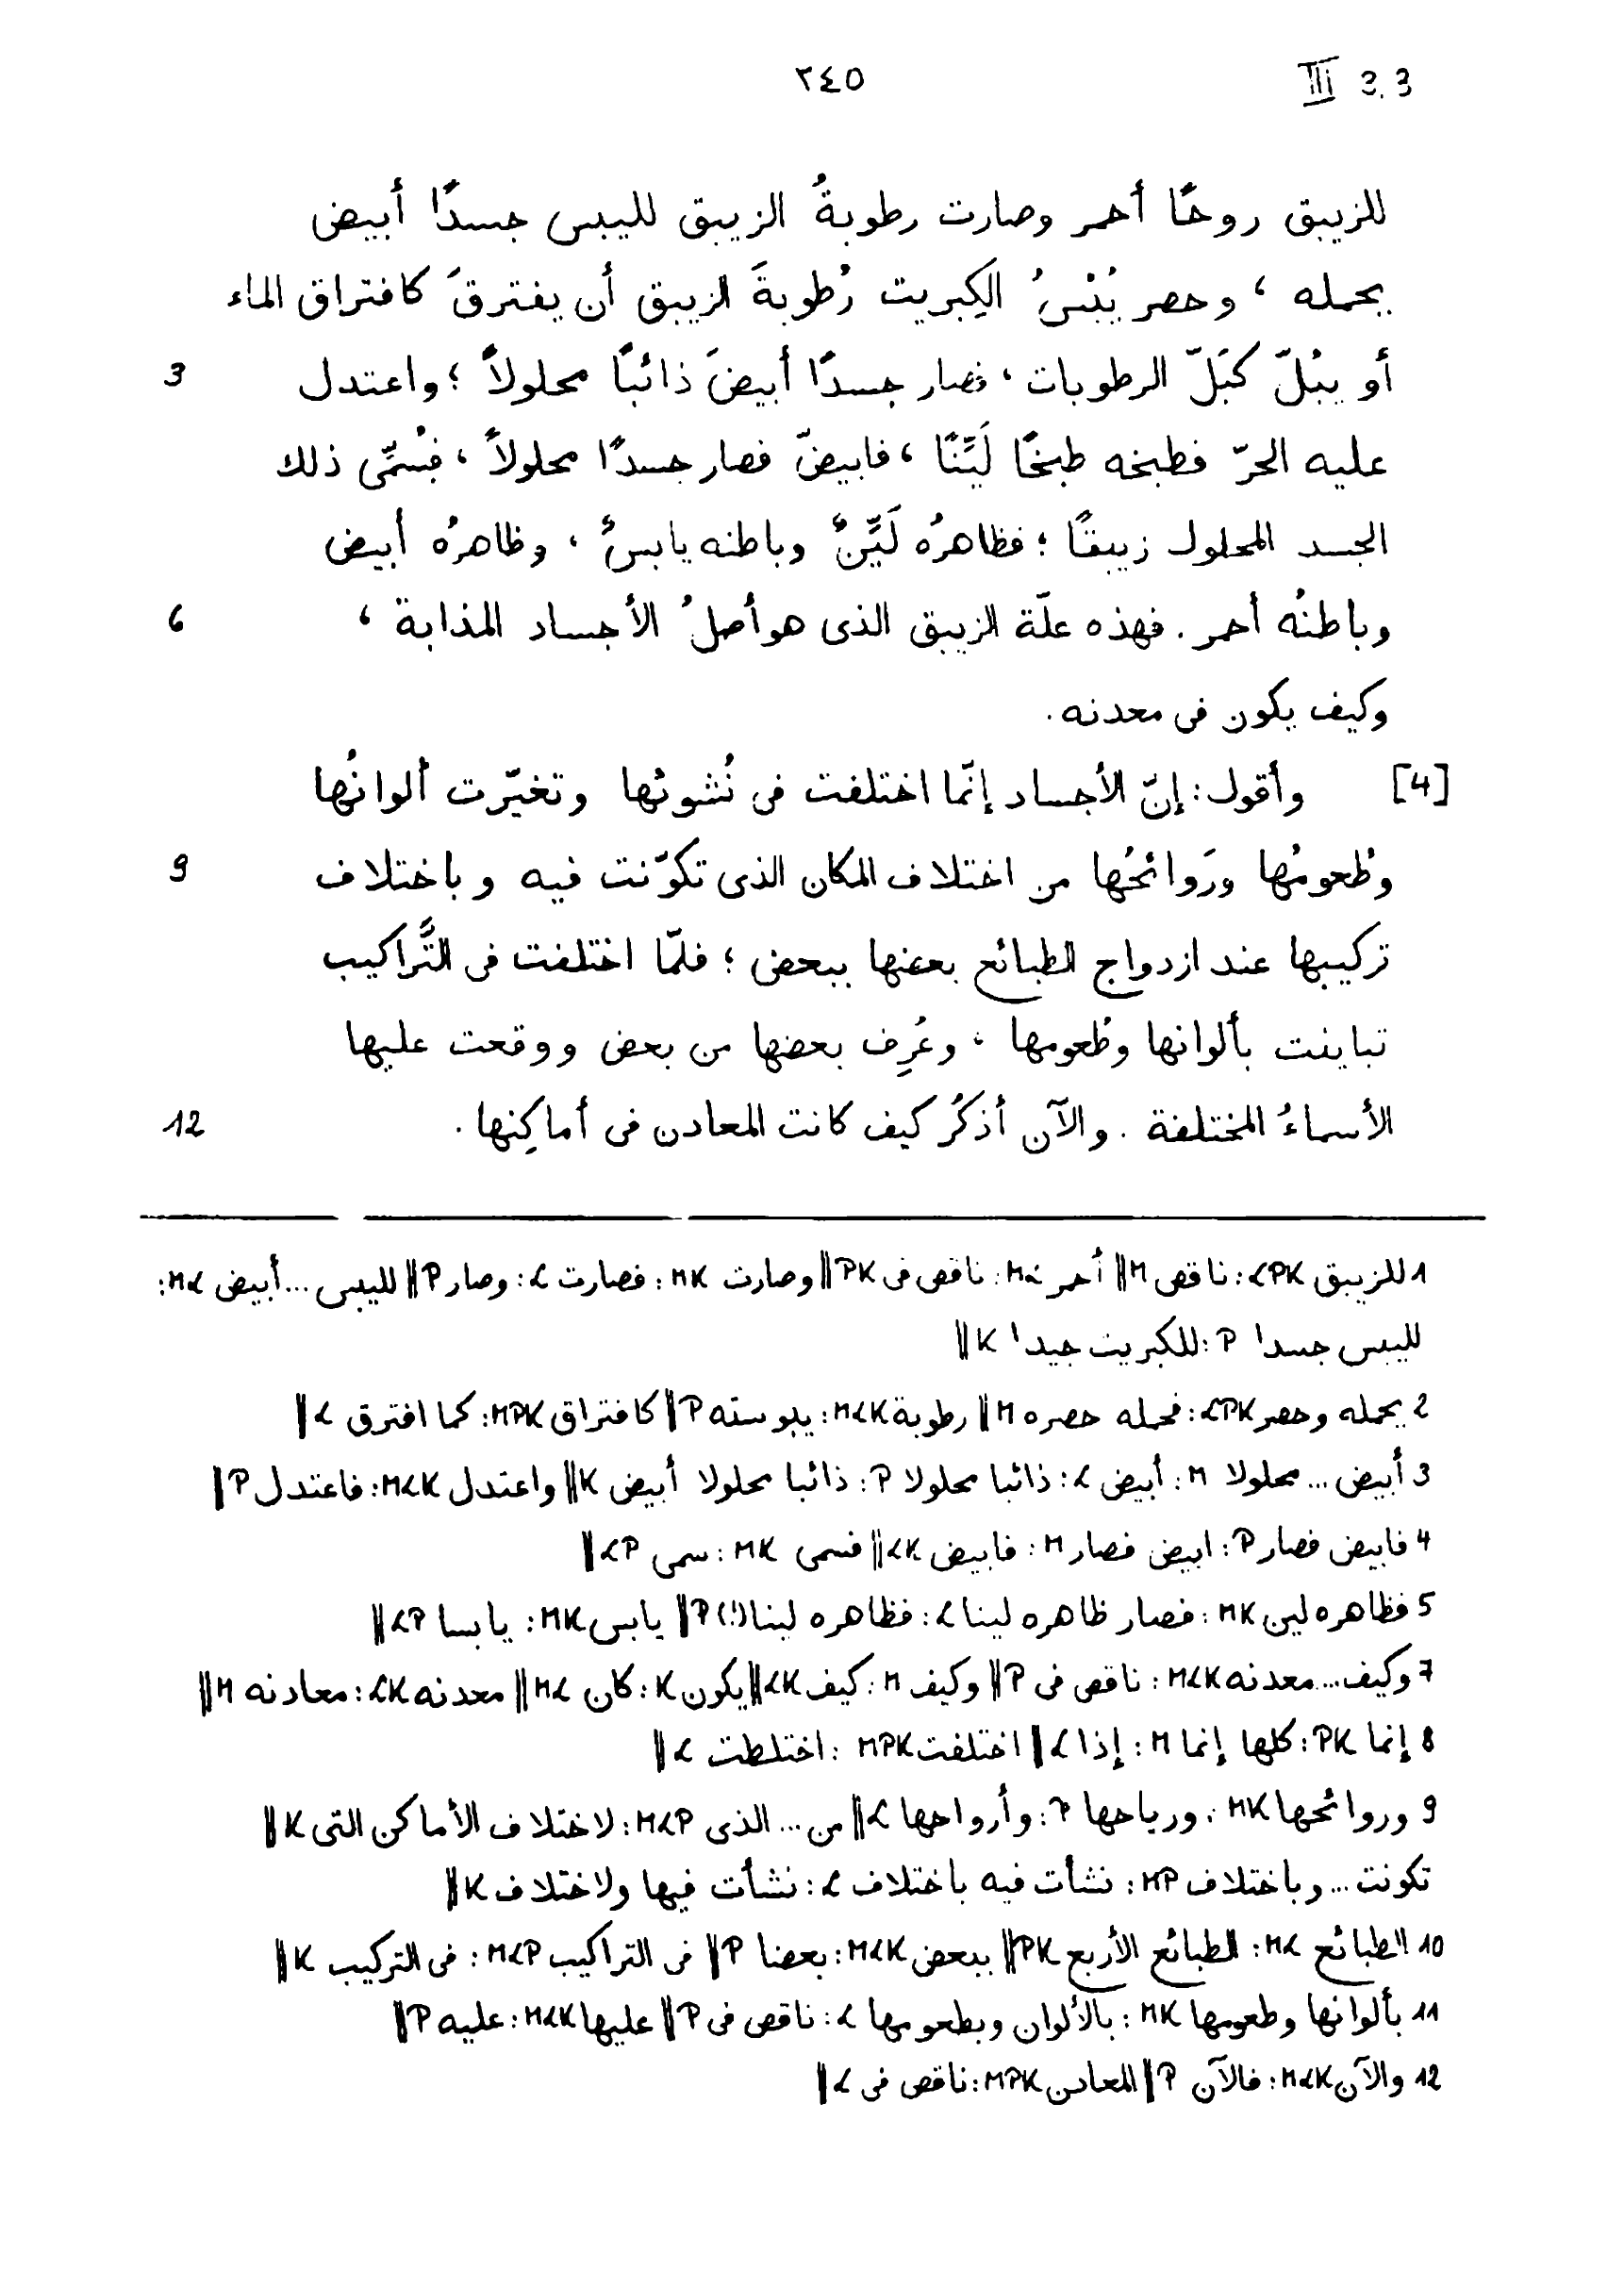 ٢٤٥ III 3.3
للزيبق روحًا أحمر وصارت رطوبةُ الزيبق لليبس جسدًا أبيض
يحمله ، وحصر يُبْسُ الكِبريت رُطوبةَ الزيبق أن يفترقَ كافتراق الماء
أو يبُلّ كبَلّ الرطوبات ، فصار جسدًا أبيضَ ذائبًا محلولاً ؛ واعتدل 3
عليه الحرّ فطبخه طبخًا لَيِّنًا ، فابيضّ فصار جسدًا محلولاً ، فسُمّى ذلك
الجسد المحلول زيبقًا ؛ فظاهرُه لَيِّنٌ وباطنه يابسٌ ، وظاهرُه أبيض
وباطنُه أحمر . فهذه علّة الزيبق الذى هو أصلُ الأجساد المذابة ، 6
وكيف يكون فى معدنه .
[4] وأقول : إنّ الأجساد إنّما اختلفت فى نُشوئها وتغيّرت ألوانُها
وطُعومُها ورَوائحُها من اختلاف المكان الذى تكوّنت فيه وباختلاف 9
تركيبها عند ازدواج الطبائع بعضها ببعض ؛ فلمّا اختلفت فى التَّراكيب
تباينت بألوانها وطُعومها ، وعُرِف بعضها من بعض ووقعت عليها
الأسماءُ المختلفة . والآن أذكرُ كيف كانت المعادن فى أماكِنها . 12
1 للزيبق LPK : ناقص M || أحمر ML : ناقص فى PK || وصارت MK : فصارت L : وصار P || لليبس ... أبيض ML :
لليبس جسدا P : للكبريت جيدا K ||
2 يحمله وحصر LPK : فحمله حصره M || رطوبة MLK : يبوسته P || كافتراق MPK : كما افترق L ||
3 أبيض ... محلولا M : أبيض L : ذائبا محلولا P : ذائبا محلولا أبيض K || واعتدل MLK : فاعتدل P ||
4 فابيض فصار P : ابيض فصار M : فابيض LK || فسمى MK : سمى LP ||
5 فظاهره لين MK : فصار ظاهره لينا L : فظاهره لينا (!) P || يابس MK : يابسا LP ||
7 وكيف ... معدنه MLK : ناقص فى P || وكيف M : كيف LK || يكون K : كان ML || معدنه LK : معادنه M ||
8 إنما PK : كلها إنما M : إذا L || اختلفت MPK : اختلطت L ||
9 وروائحها MK : ورياحها P : وأرواحها L || من ... الذى MLP : لاختلاف الأماكن التى K ||
تكونت ... وباختلاف MP : نشأت فيه باختلاف L : نشأت فيها ولاختلاف K ||
10 الطبائع ML : الطبائع الأربع PK || ببعض MLK : بعضا P || فى التراكيب MLP : فى التركيب K ||
11 بألوانها وطعومها MK : بالألوان وبطعومها L : ناقص فى P || عليها MLK : عليه P ||
12 والآن MLK : فالآن P || المعادن MPK : ناقص فى L ||